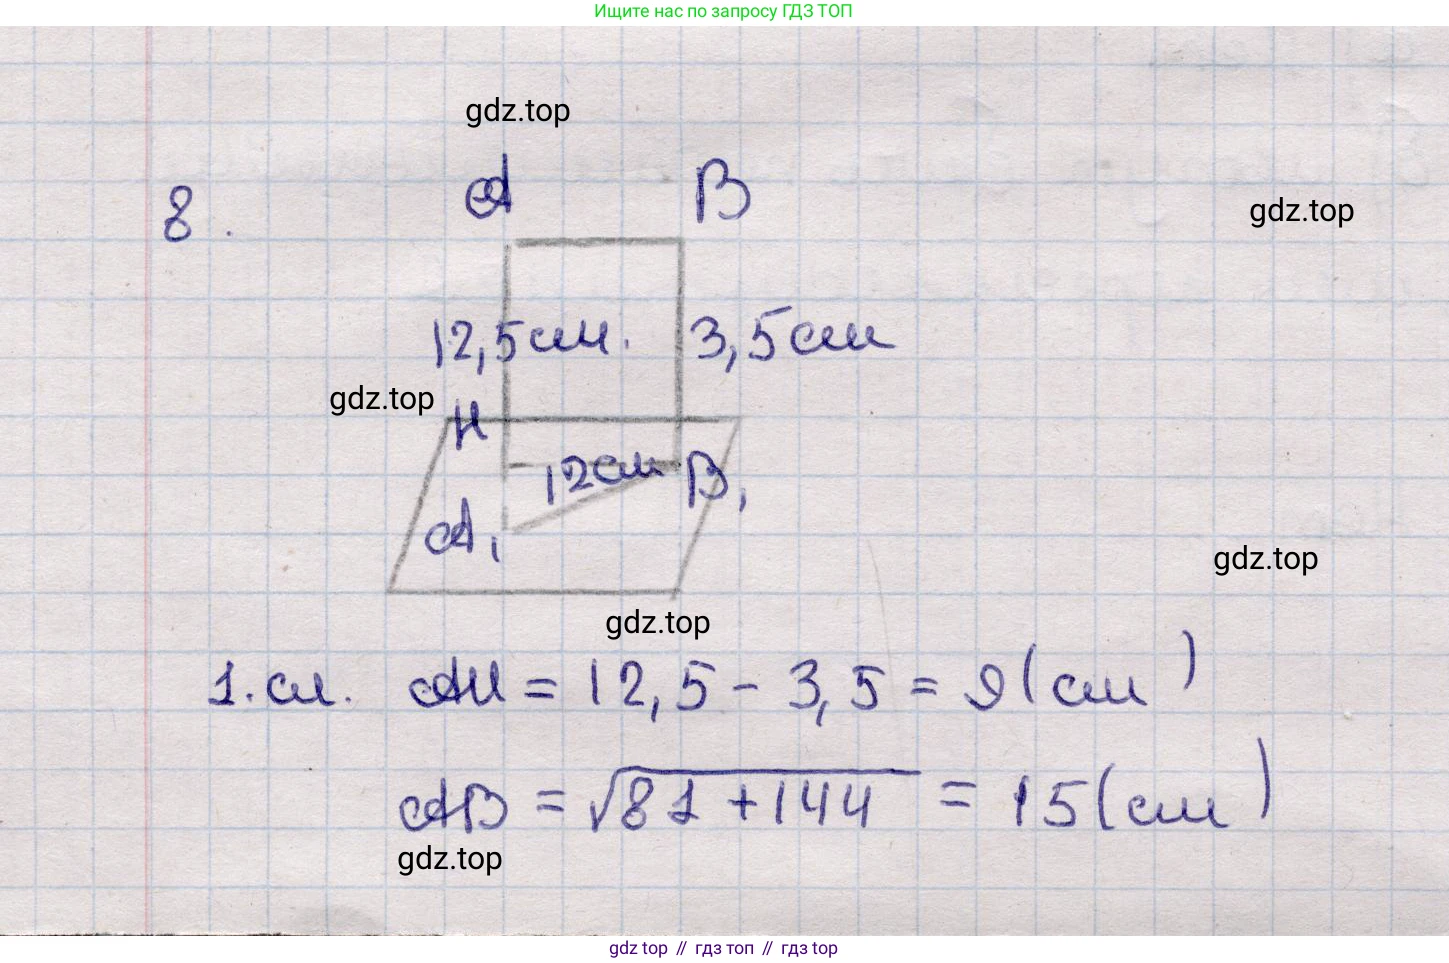 Ищите нас по запросу ГДЗ ТОП
gdz.top
A B
8.
gdz.top
12,5см. 3,5см
gdz.top
H
12см B₁
A₁
gdz.top
gdz.top
1. сл. AH = 12,5 - 3,5 = 9 (см)
AB = √81 + 144 = 15 (см)
gdz.top
gdz top // гдз топ // гдз top